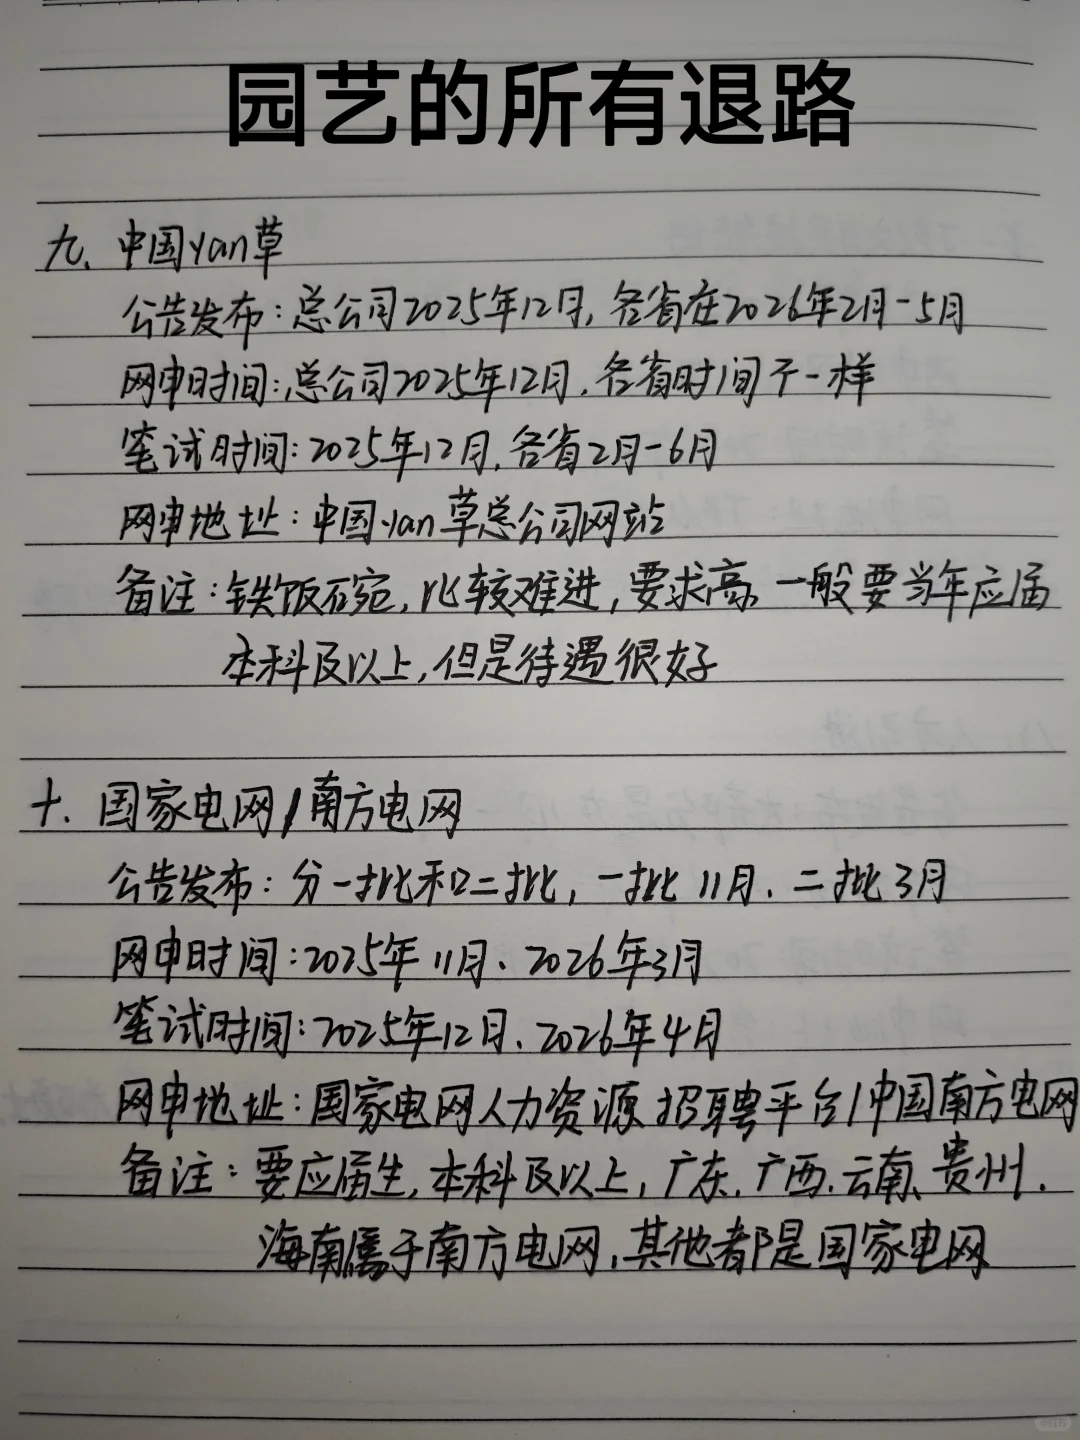 园艺的所有退路
九、中国yan草
公告发布：总公司2025年12月，各省在2026年2月-5月
网申时间：总公司2025年12月，各省时间不一样
笔试时间：2025年12月，各省2月-6月
网申地址：中国yan草总公司网站
备注：铁饭碗，比较难进，要求高，一般要当年应届
本科及以上，但是待遇很好
十、国家电网/南方电网
公告发布：分一批和二批，一批11月、二批3月
网申时间：2025年11月、2026年3月
笔试时间：2025年12月、2026年4月
网申地址：国家电网人力资源招聘平台/中国南方电网
备注：要应届生，本科及以上，广东、广西、云南、贵州、
海南属于南方电网，其他都是国家电网